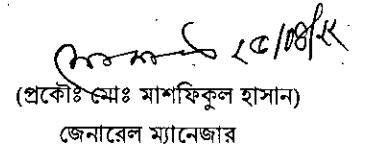 ২৫/০৪/২২
(প্রকৌঃ মোঃ মাশফিকুল হাসান)
জেনারেল ম্যানেজার